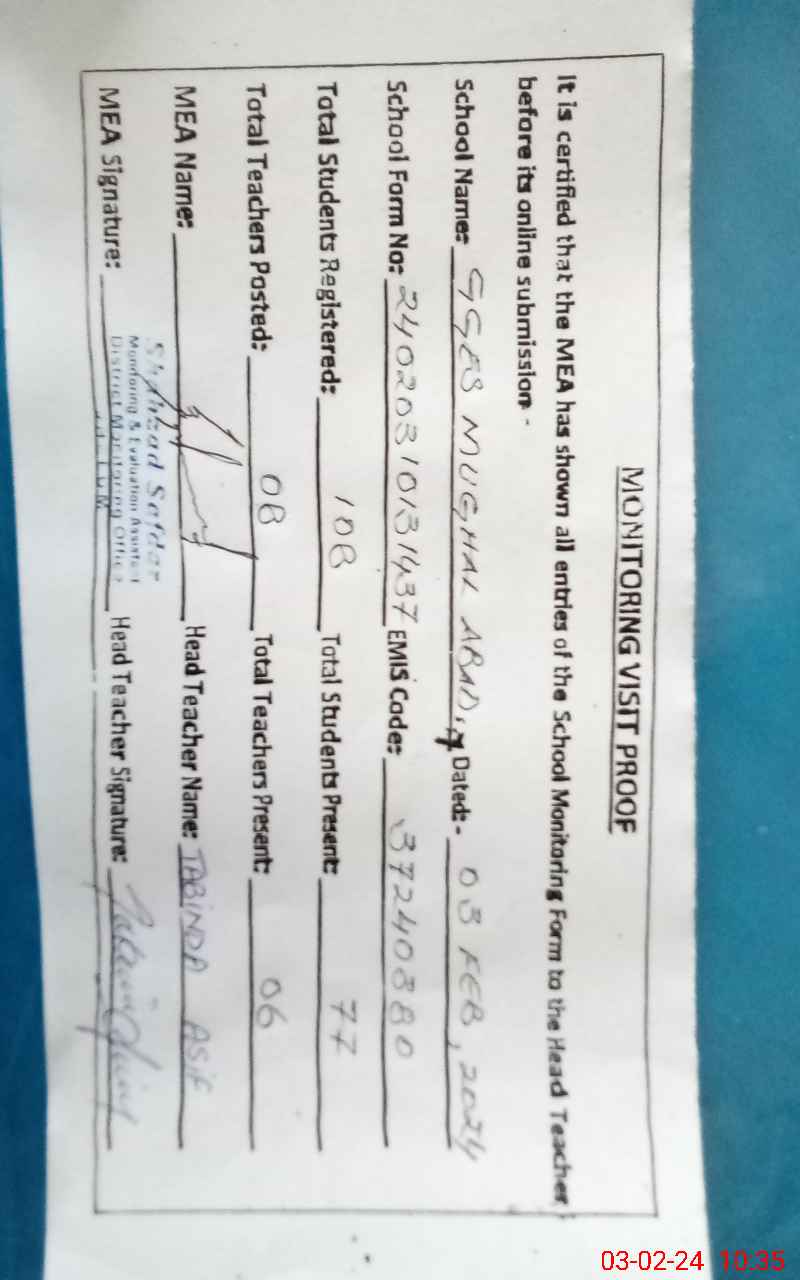 MONITORING VISIT PROOF
It is certified that the MEA has shown all entries of the School Monitoring Form to the Head Teacher
before its online submission -
School Name: GGES MUGHAL ABAD, Dated:- 03 FEB, 2024
School Form No: 24020310131437 EMIS Code: 37240380
Total Students Registered: 108 Total Students Present: 77
Total Teachers Posted: 08 Total Teachers Present: 06
MEA Name: Head Teacher Name: TABINDA ASIF
Shahzad Safdar
Monitoring & Evaluation Assistant
District Monitoring Office
MEA Signature: Head Teacher Signature:
03-02-24 10:35